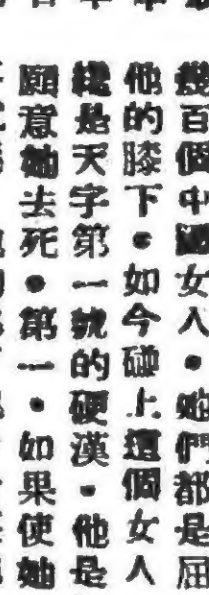 幾百個中國女人，她們都是屈
他的膝下。如今碰上這個女人
是天字第一號的硬漢，他是
願意她去死。第一，如果使她